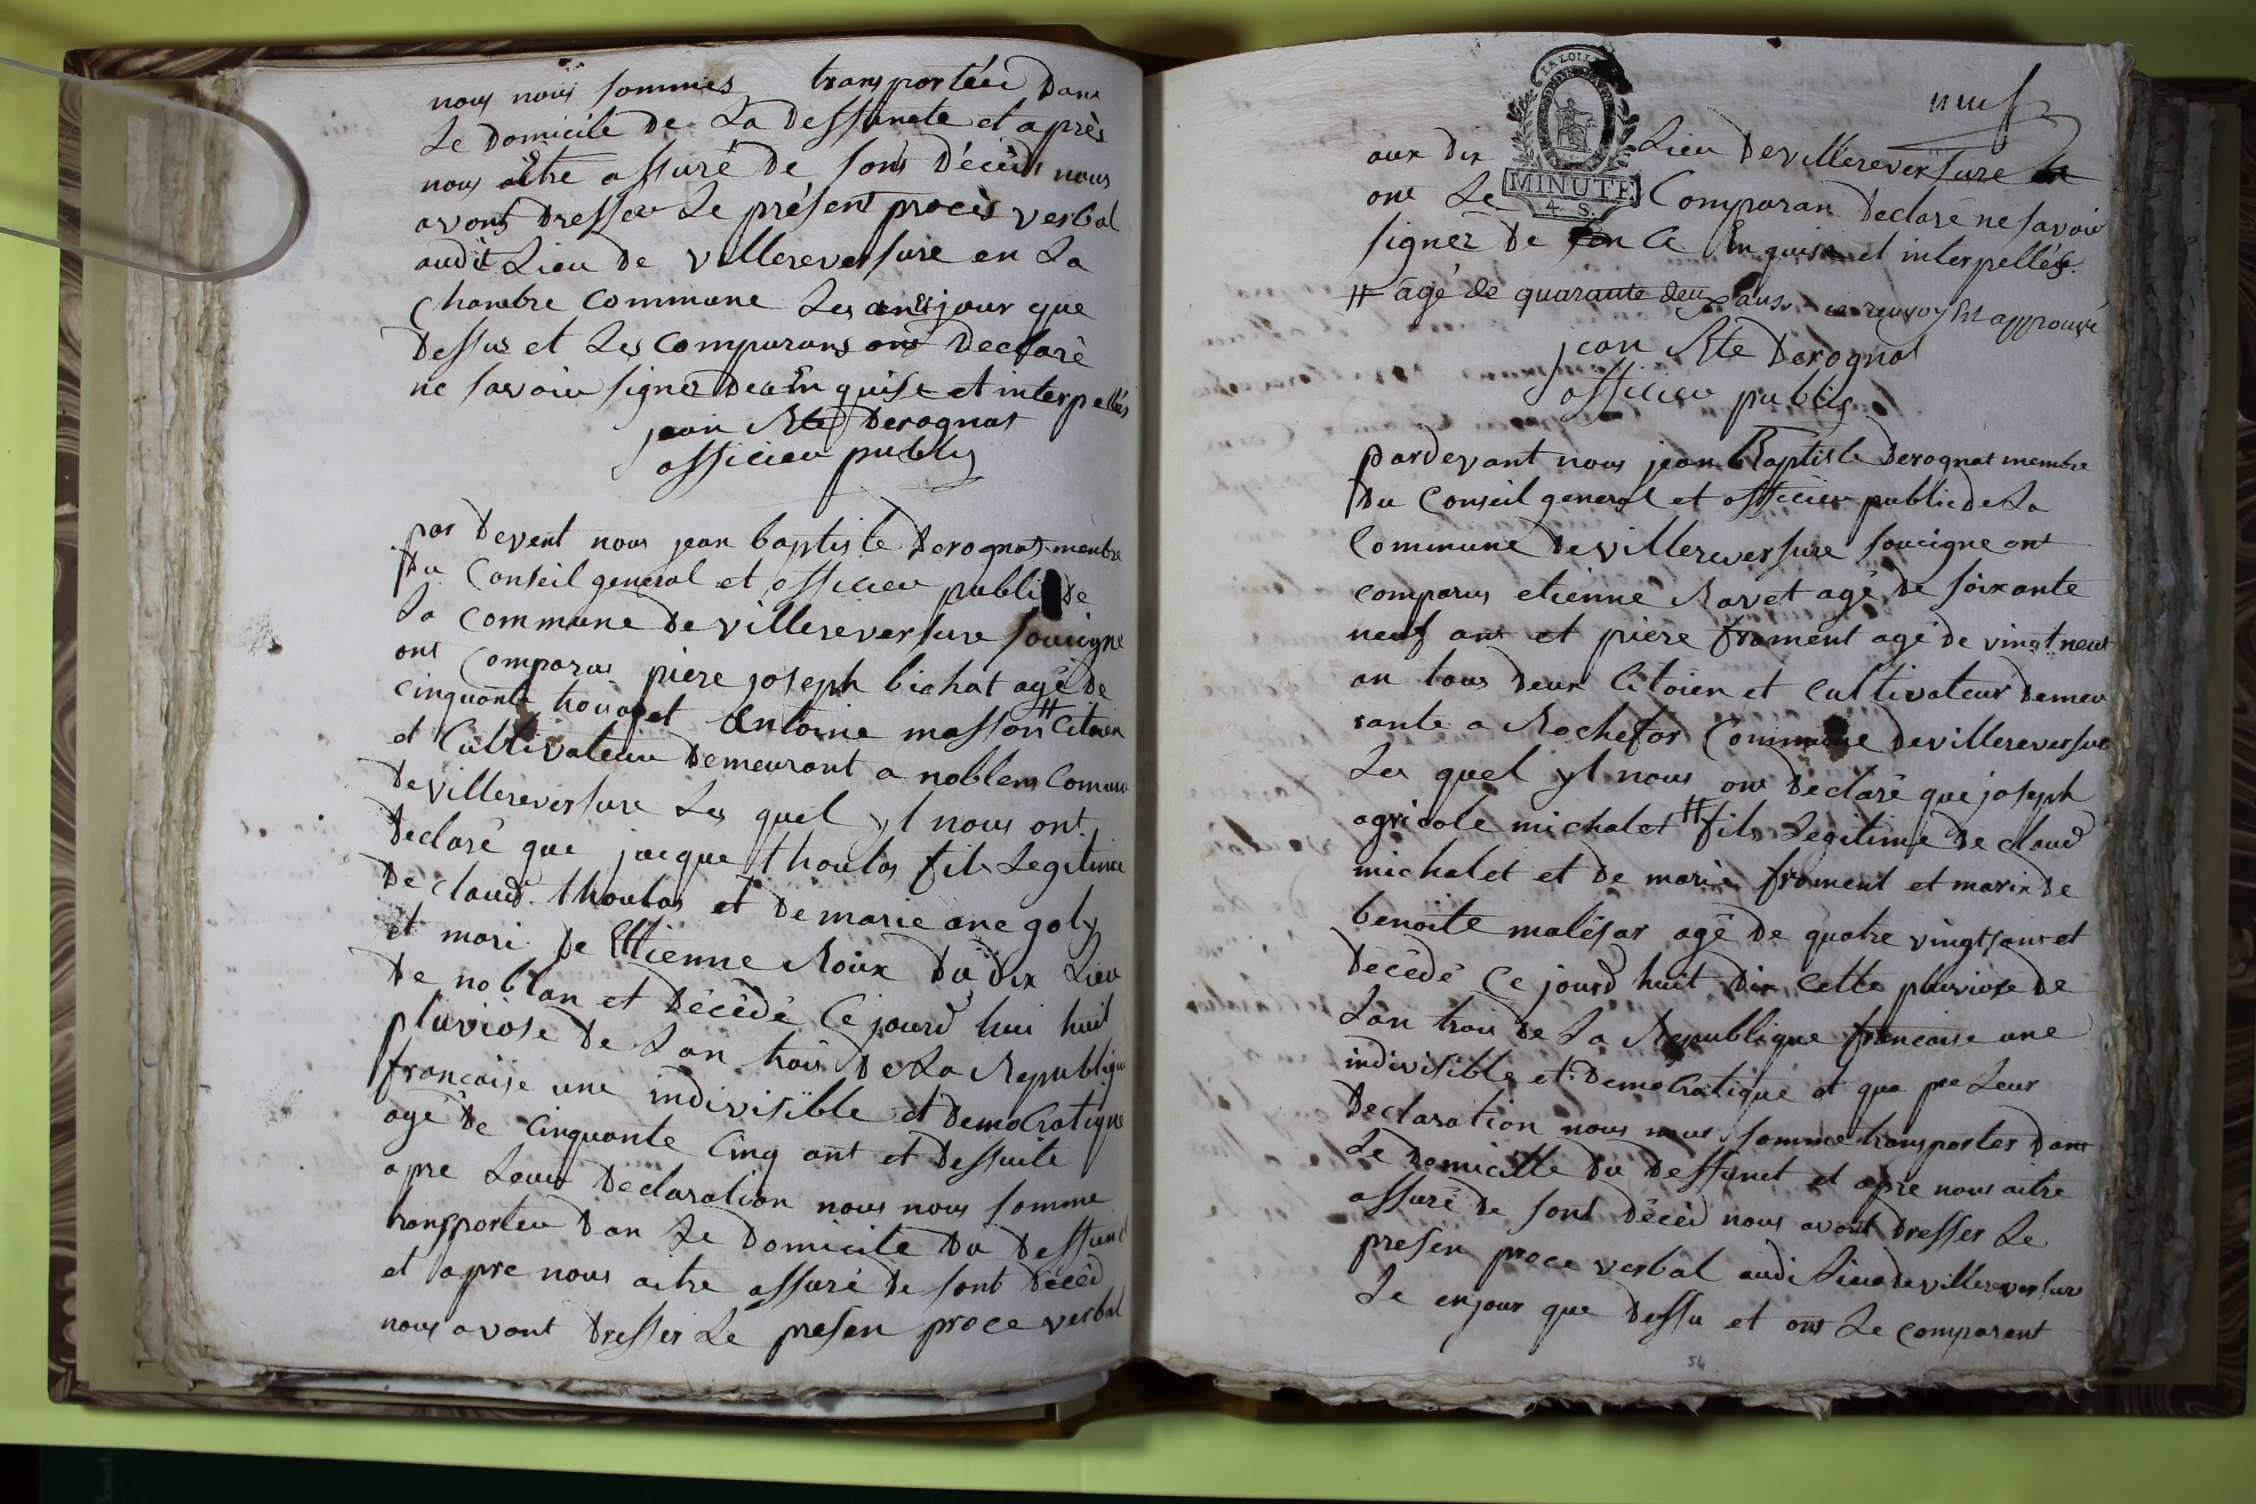 nous nous sommes transportéer dans
Le domicile de La deffuncte et après
nous aitre assuré de sons décéds nous
avons dresser Le présent procès verbal
audit Lieu de villereversure en La
chambre commune Les an et jour que
dessus et Les comparans ont declaré
ne savoir signer dece En quise et interpellés
jean Bte Derognat
officier public
par devent nous jean baptiste Derognat menbre
Du Conseil general et officier public de
La commune de villereversure soucigne
ont comparus piere joseph bichat agé de
cinquante troi an et Antoine masson # citoien
et Cultivateur demeurant a noblens Comune
de villereversure Les quel yl nous ont
declaré que jacque thoulas fils Legitime
de claud thoulas et de marie ane goly
et mari de Ettienne Roux du dix Lieu
de noblan et décédé Ce jourd hui huit
pluviose de Lan trois de La Republique
francaise une indivisible et democratique
agé de cinquante cinq ant et dessuite
apre Leur declaration nous nous somme
transporteu dan Le domicile du deffunt
et apre nous aitre assuré de sont décéd
nous avont dresser Le presen proce verbal
neuf
LA LOI
MINUTE
4. S.
aux dix Lieu de villereversure
ont Le Comparan declaré ne savoir
signer de Ce En quise et interpellés
# agé de quarante deux ans. ce renvoy Est approuvé
jean Bte Derognat
officier public
pardevant nous jean Baptiste Derognat membre
Du Conseil general et officier public de La
Commune de villereversure soucigne ont
comparus etienne Ravet agé de soixante
neuf ans et piere froment agé de vingt neuf
an tous deux Citoien et Cultivateur demeu
rante a Rochefor Commune de villereversure
Les quel yl nous ont declaré que joseph
agricole michalet # fils Legitime de claud
michalet et de marie froment et marix de
benoite malésar agé de quatre vingt ans et
décédé Ce jourd huit dix cette pluviose de
Lan trois de La Republique francaise une
indivisible et democratique et que pre Leur
declaration nous nous somme transporter dans
Le domicille du deffunct et apre nous aitre
assuré de sont décéd nous avont dresser Le
presen proce verbal audi Lieu de villereversure
Le en jour que dessu et ont Le comparent
54